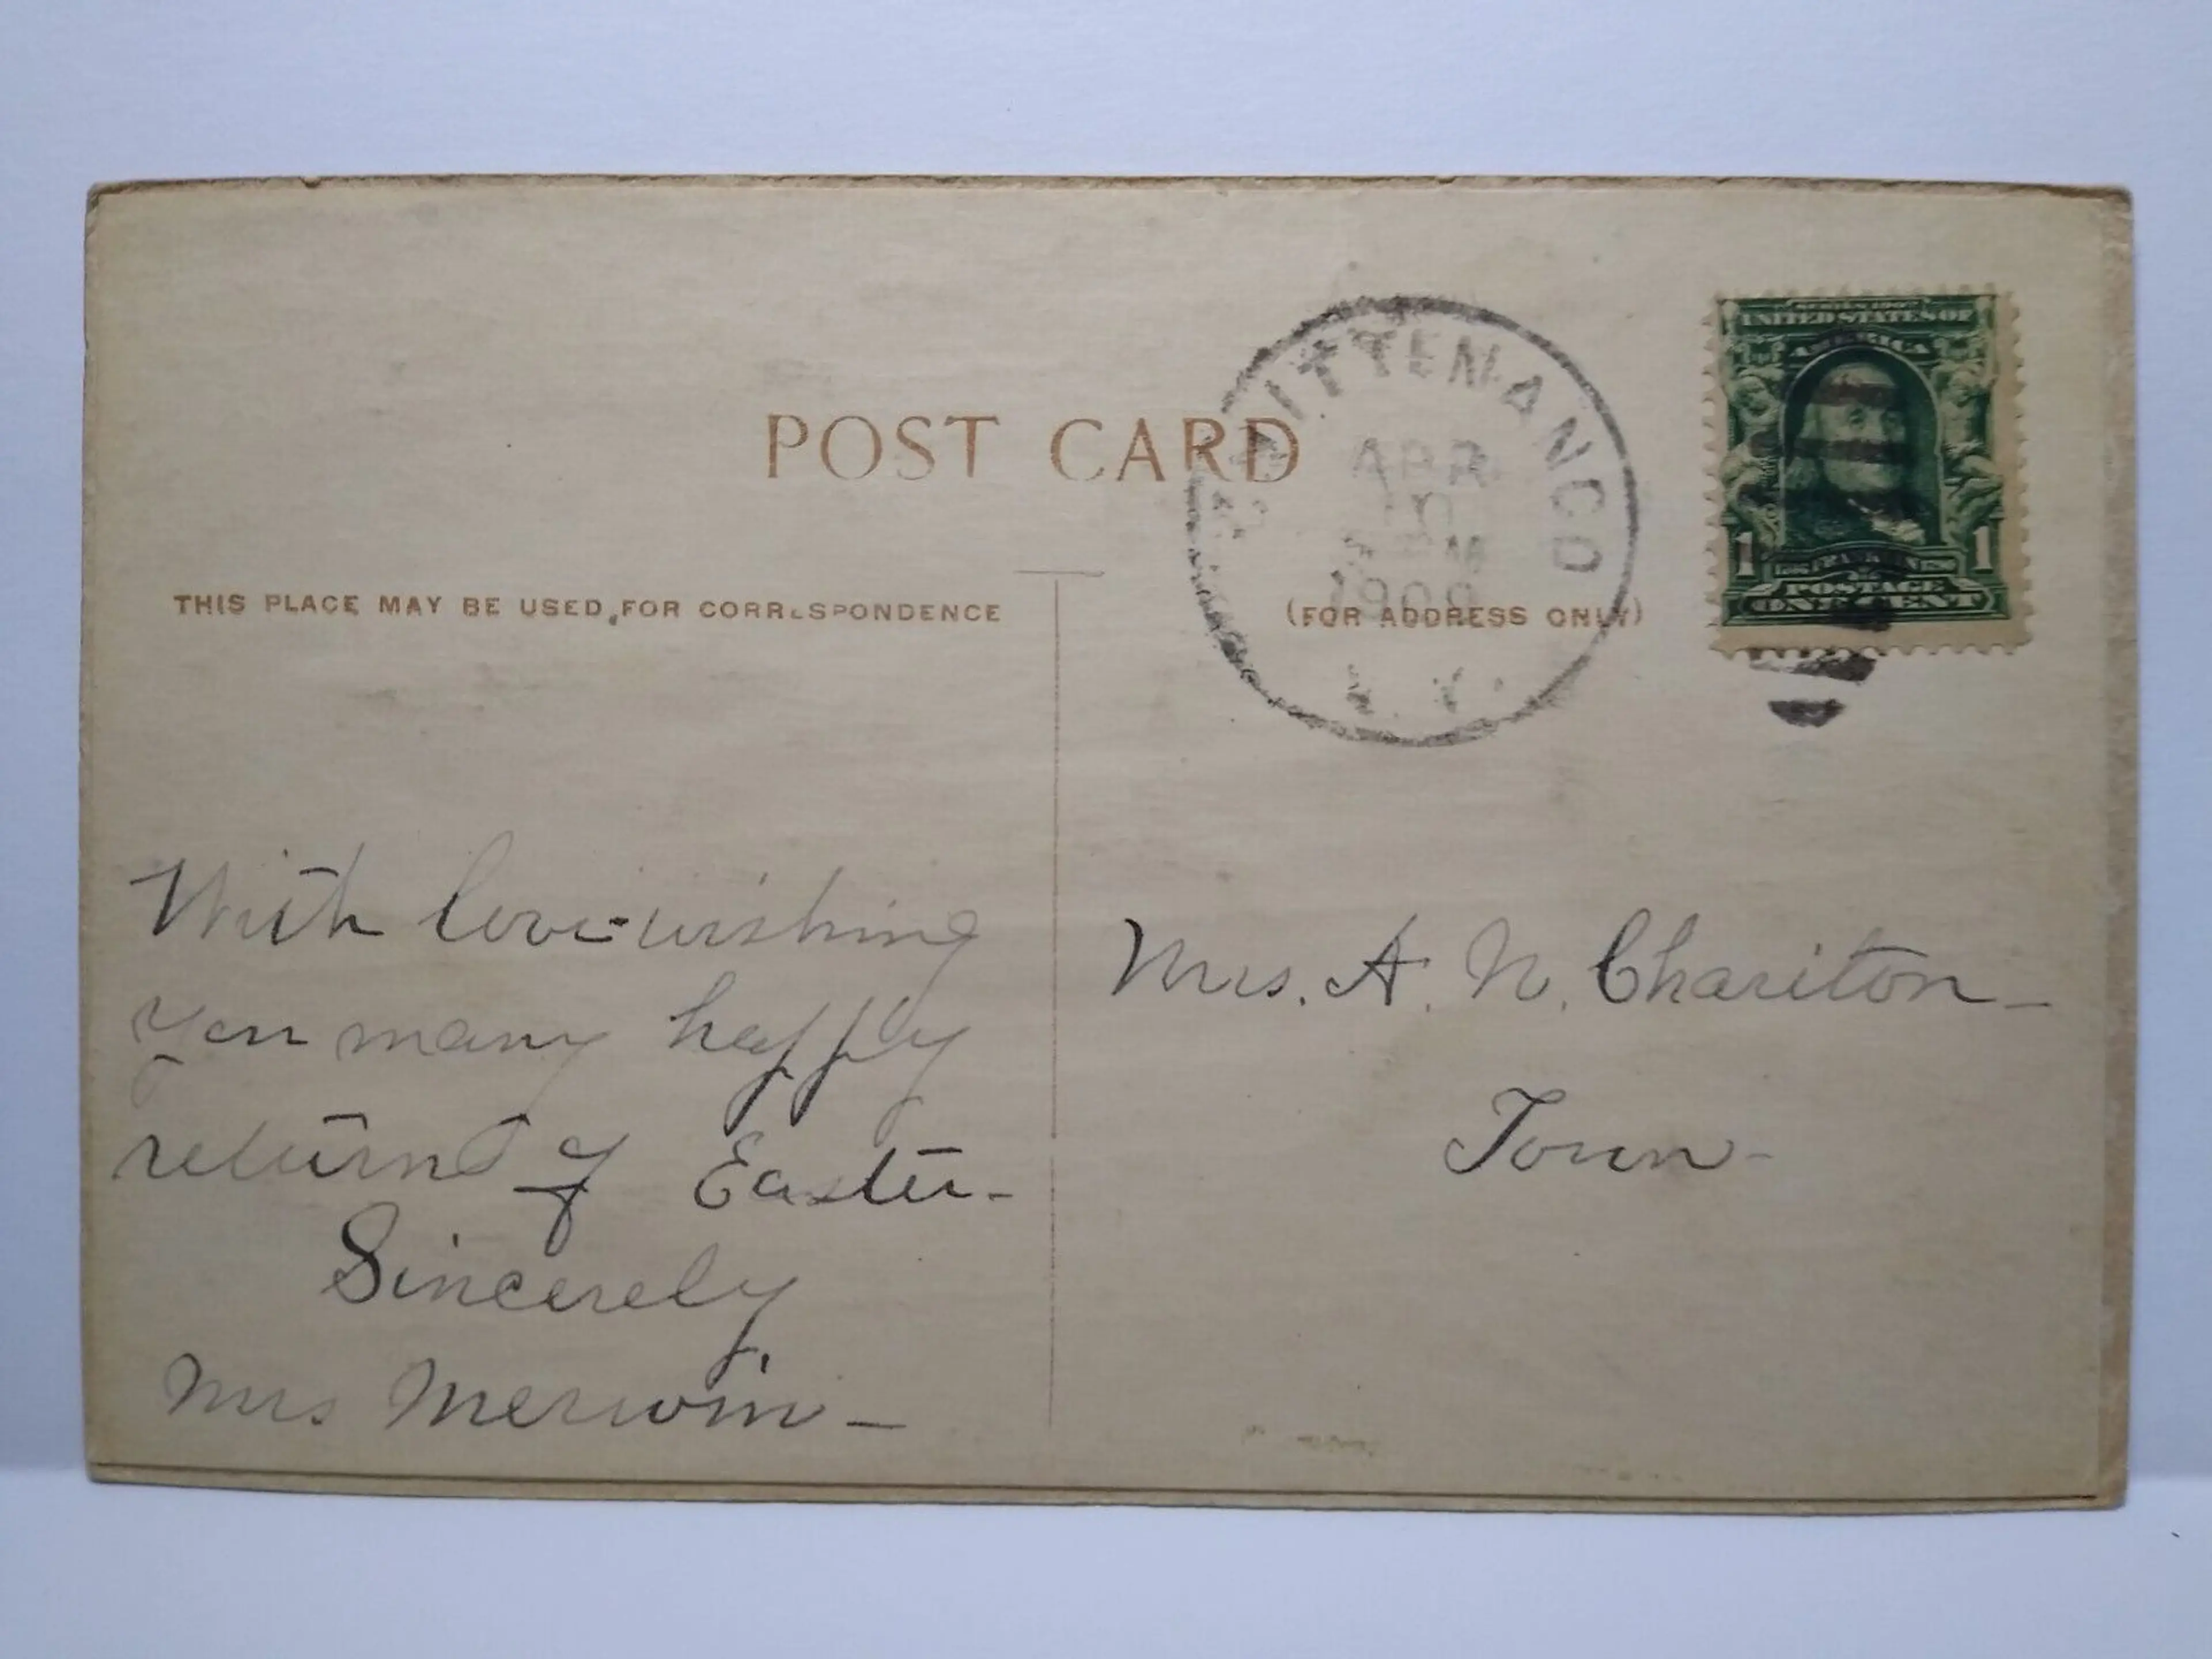 POST CARD
THIS PLACE MAY BE USED FOR CORRESPONDENCE
(FOR ADDRESS ONLY)
CHITTENANGO
APR
10
1909
N.Y.
SERIES 1902
UNITED STATES OF
AMERICA
1 FRANKLIN 1
POSTAGE
ONE CENT
With love-wishing
you many happy
returns of Easter-
Sincerely
Mrs Merwin-
Mrs. A. N. Chariton-
Town-